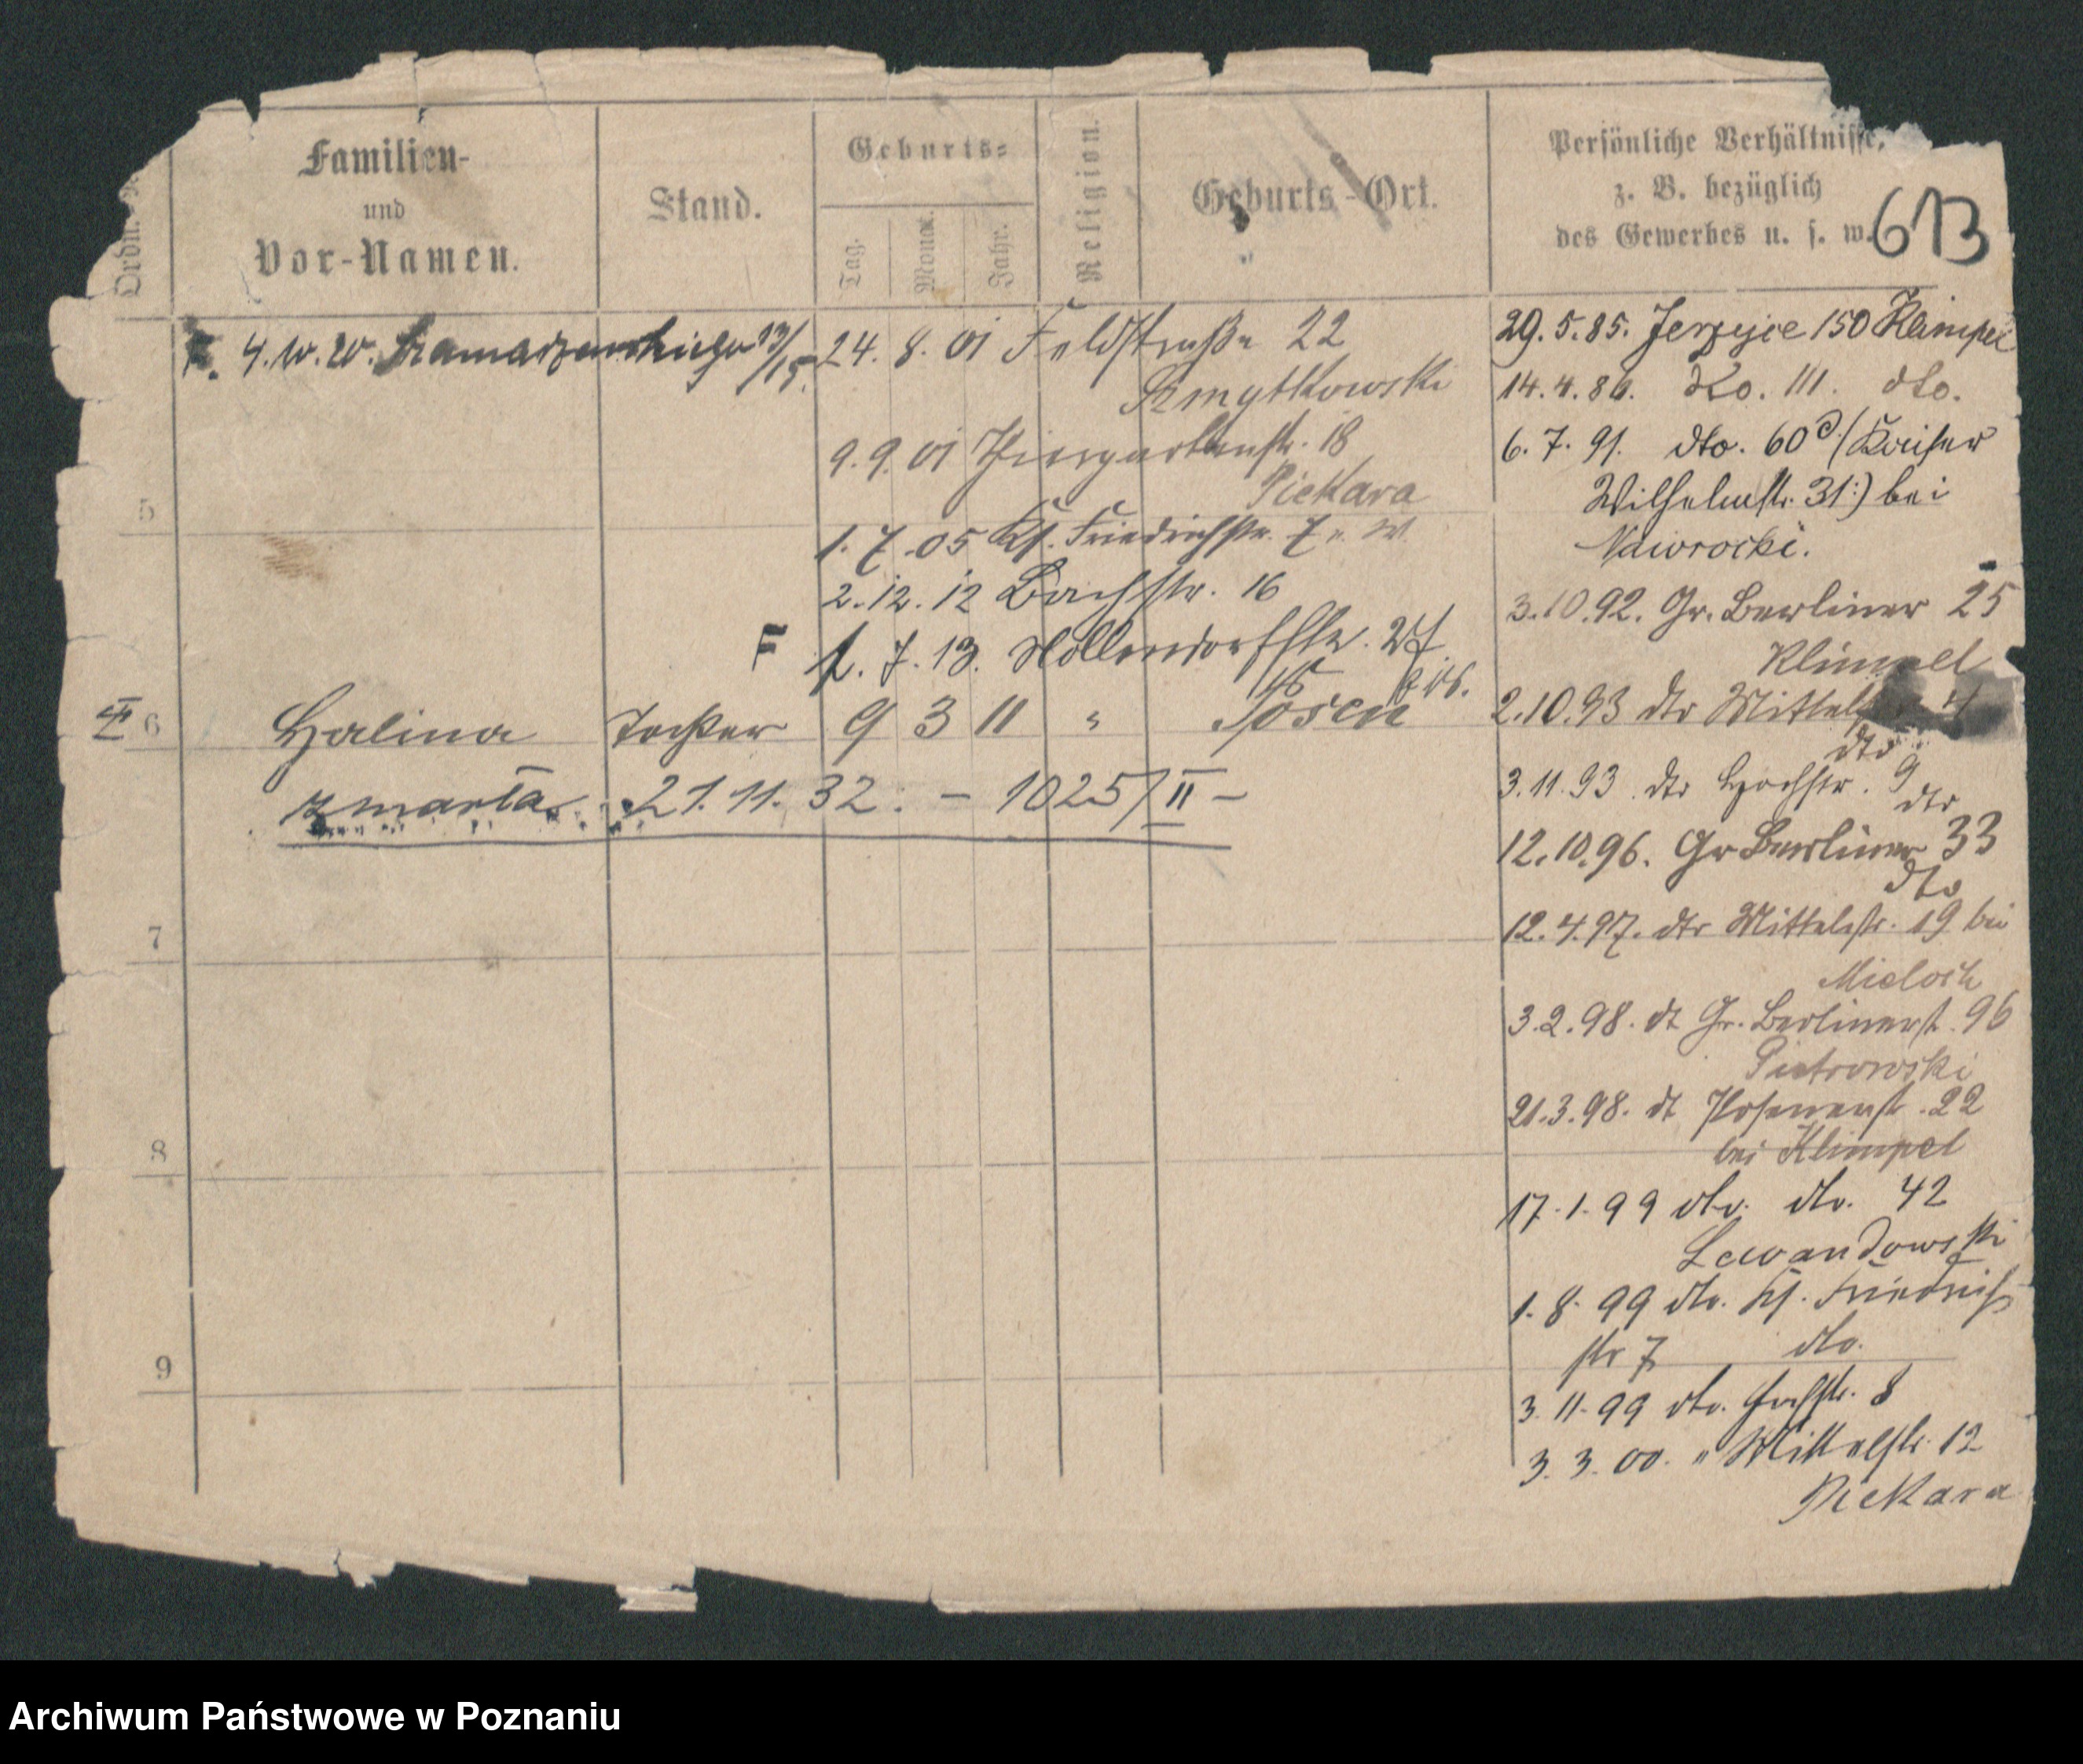 Ordn.
Familien-
und
Vor-Namen.
Stand.
Geburts-
Tag.
Monat.
Jahr.
Religion.
Geburts-Ort.
Persönliche Verhältnisse,
z. B. bezüglich
des Gewerbes u. s. w.
613
4. w. w. 13/15.
24. 8. 01 Feldstraße 22
Szmytkowski
9. 9. 01 Thiergartenstr. 18
Piekara
5
1. 7. 05 Kl. Friedrichstr. 7
2. 12. 12 Bachstr. 16
F 1. 7. 13. Nollendorfstr. 27
6 Halina Tochter 9 3 11 " Posen
zmarła 21. 11. 32. – 1025/II –
7
8
9
29. 5. 85. Jerzyjce 150 Klimpel
14. 4. 86. do. 111. dto.
6. 7. 91. dto. 60 (Kaiser
Wilhelmstr. 31:) bei
Nawrocki.
3. 10. 92. Gr. Berliner 25
Klimpel
2. 10. 93 dto
dto
3. 11. 93. dto Hochstr. 9
dto
12. 10. 96. Gr Berliner 33
dto
12. 4. 97. dto Mittelstr. 19 bei
Mieloch
3. 2. 98. dt Gr. Berlinerst. 96
Pietrowski
21. 3. 98. dt Posenerst. 22
bei Klimpel
17. 1. 99 dto. dto. 42
Lewandowski
1. 8. 99 dto. Kl. Friedrich
str 7 dto.
3. 11. 99 dto. Hochstr. 8
3. 3. 00. " Mittelstr. 12
Piekara
Archiwum Państwowe w Poznaniu